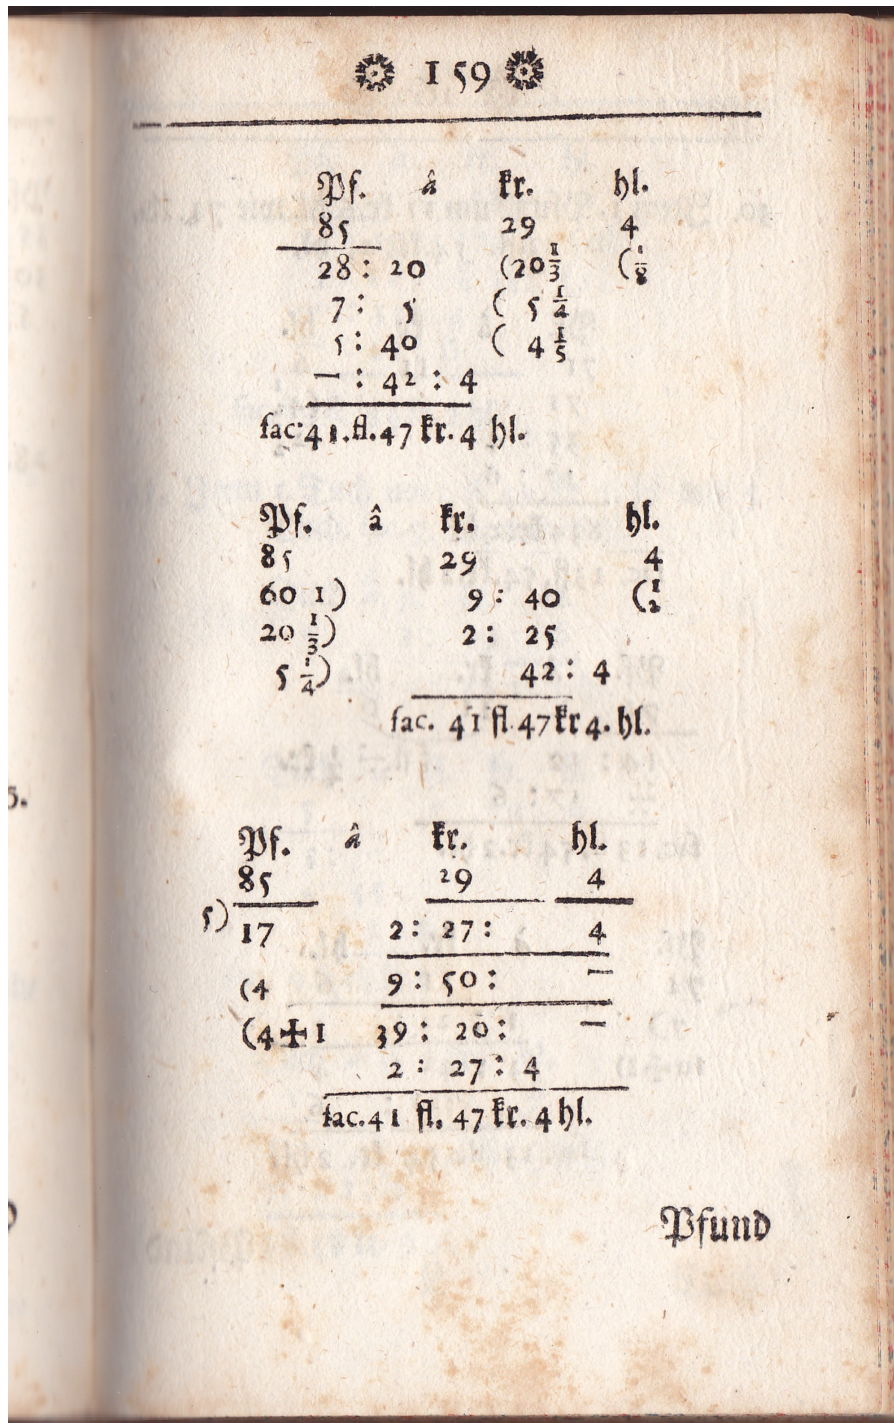 159
Pf. â kr. hl.
85 29 4
28 : 20 (20 1/3 (1/8
7 : 5 ( 5 1/4
5 : 40 ( 4 1/5
— : 42 : 4
fac. 41. fl. 47 kr. 4 hl.
Pf. â kr. hl.
85 29 4
60 1) 9 : 40 (1/2
20 1/3) 2 : 25
5 1/4) 42 : 4
fac. 41 fl. 47 kr 4. hl.
Pf. â kr. hl.
85 29 4
5) 17 2 : 27 : 4
(4 9 : 50 : —
(4 ✠ 1 39 : 20 : —
2 : 27 : 4
fac. 41 fl. 47 kr. 4 hl.
Pfund